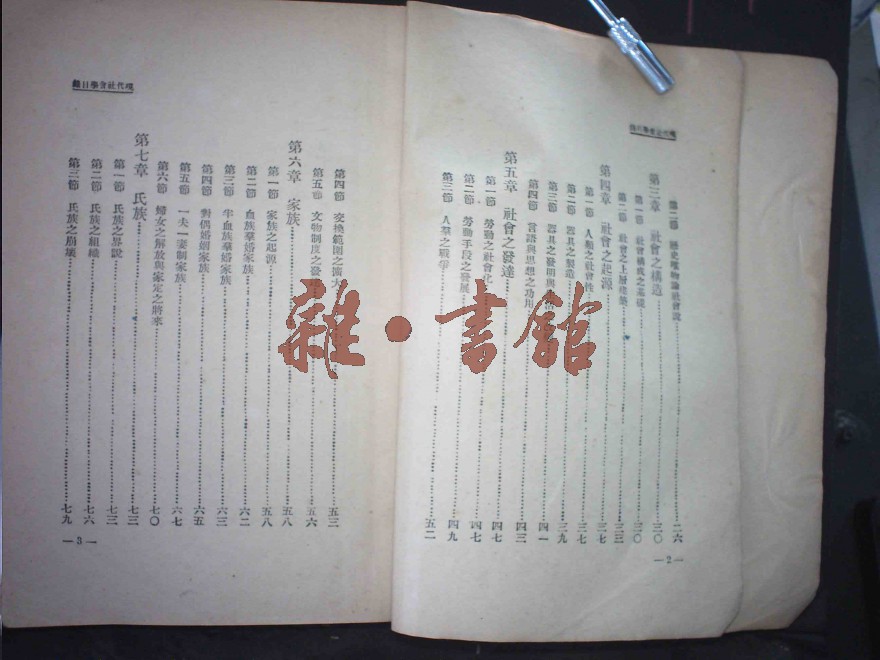 現代社會學目錄
第二節 歷史唯物論社會說 二六
第三章 社會之構造 三〇
第一節 社會構成之基礎 三〇
第二節 社會之上層建築 三三
第四章 社會之起源 三七
第一節 人類之社會性 三七
第二節 器具之製造 三九
第三節 器具之發明與 四一
第四節 言語與思想之功用 四三
第五章 社會之發達 四七
第一節 勞動之社會化 四七
第二節 勞動手段之發展 四九
第三節 人羣之戰爭 五二
—2—
現代社會學目錄
第四節 交換範圍之擴大 五三
第五節 文物制度之發 五六
第六章 家族 五八
第一節 家族之起源 五八
第二節 血族羣婚家族 六二
第三節 半血族羣婚家族 六三
第四節 對偶婚姻家族 六五
第五節 一夫一妻制家族 六七
第六節 婦女之解放與家庭之將來 七〇
第七章 氏族 七三
第一節 氏族之界說 七三
第二節 氏族之組織 七六
第三節 氏族之崩壞 七九
—3—
雜·書館